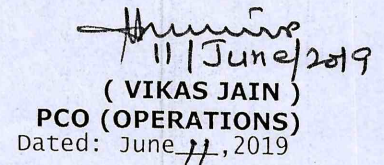 11/June/2019
( VIKAS JAIN )
PCO (OPERATIONS)
Dated: June 11,2019